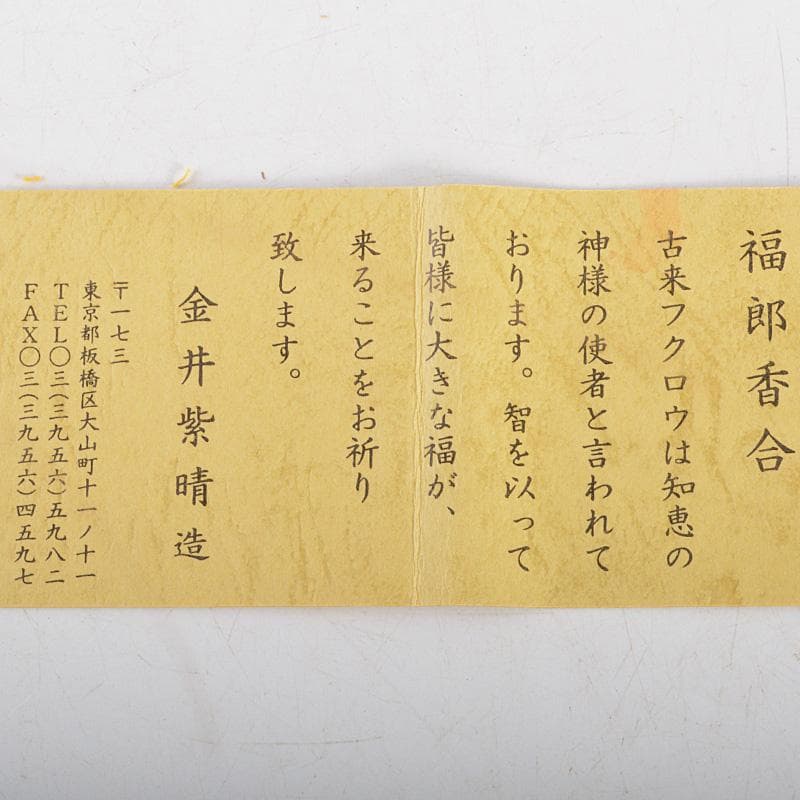 福郎香合
古来フクロウは知恵の
神様の使者と言われて
おります。智を以って
皆様に大きな福が、
来ることをお祈り
致します。
金井紫晴造
〒一七三
東京都板橋区大山町十一ノ十一
TEL〇三(三九五六)五九八二
FAX〇三(三九五六)四五九七